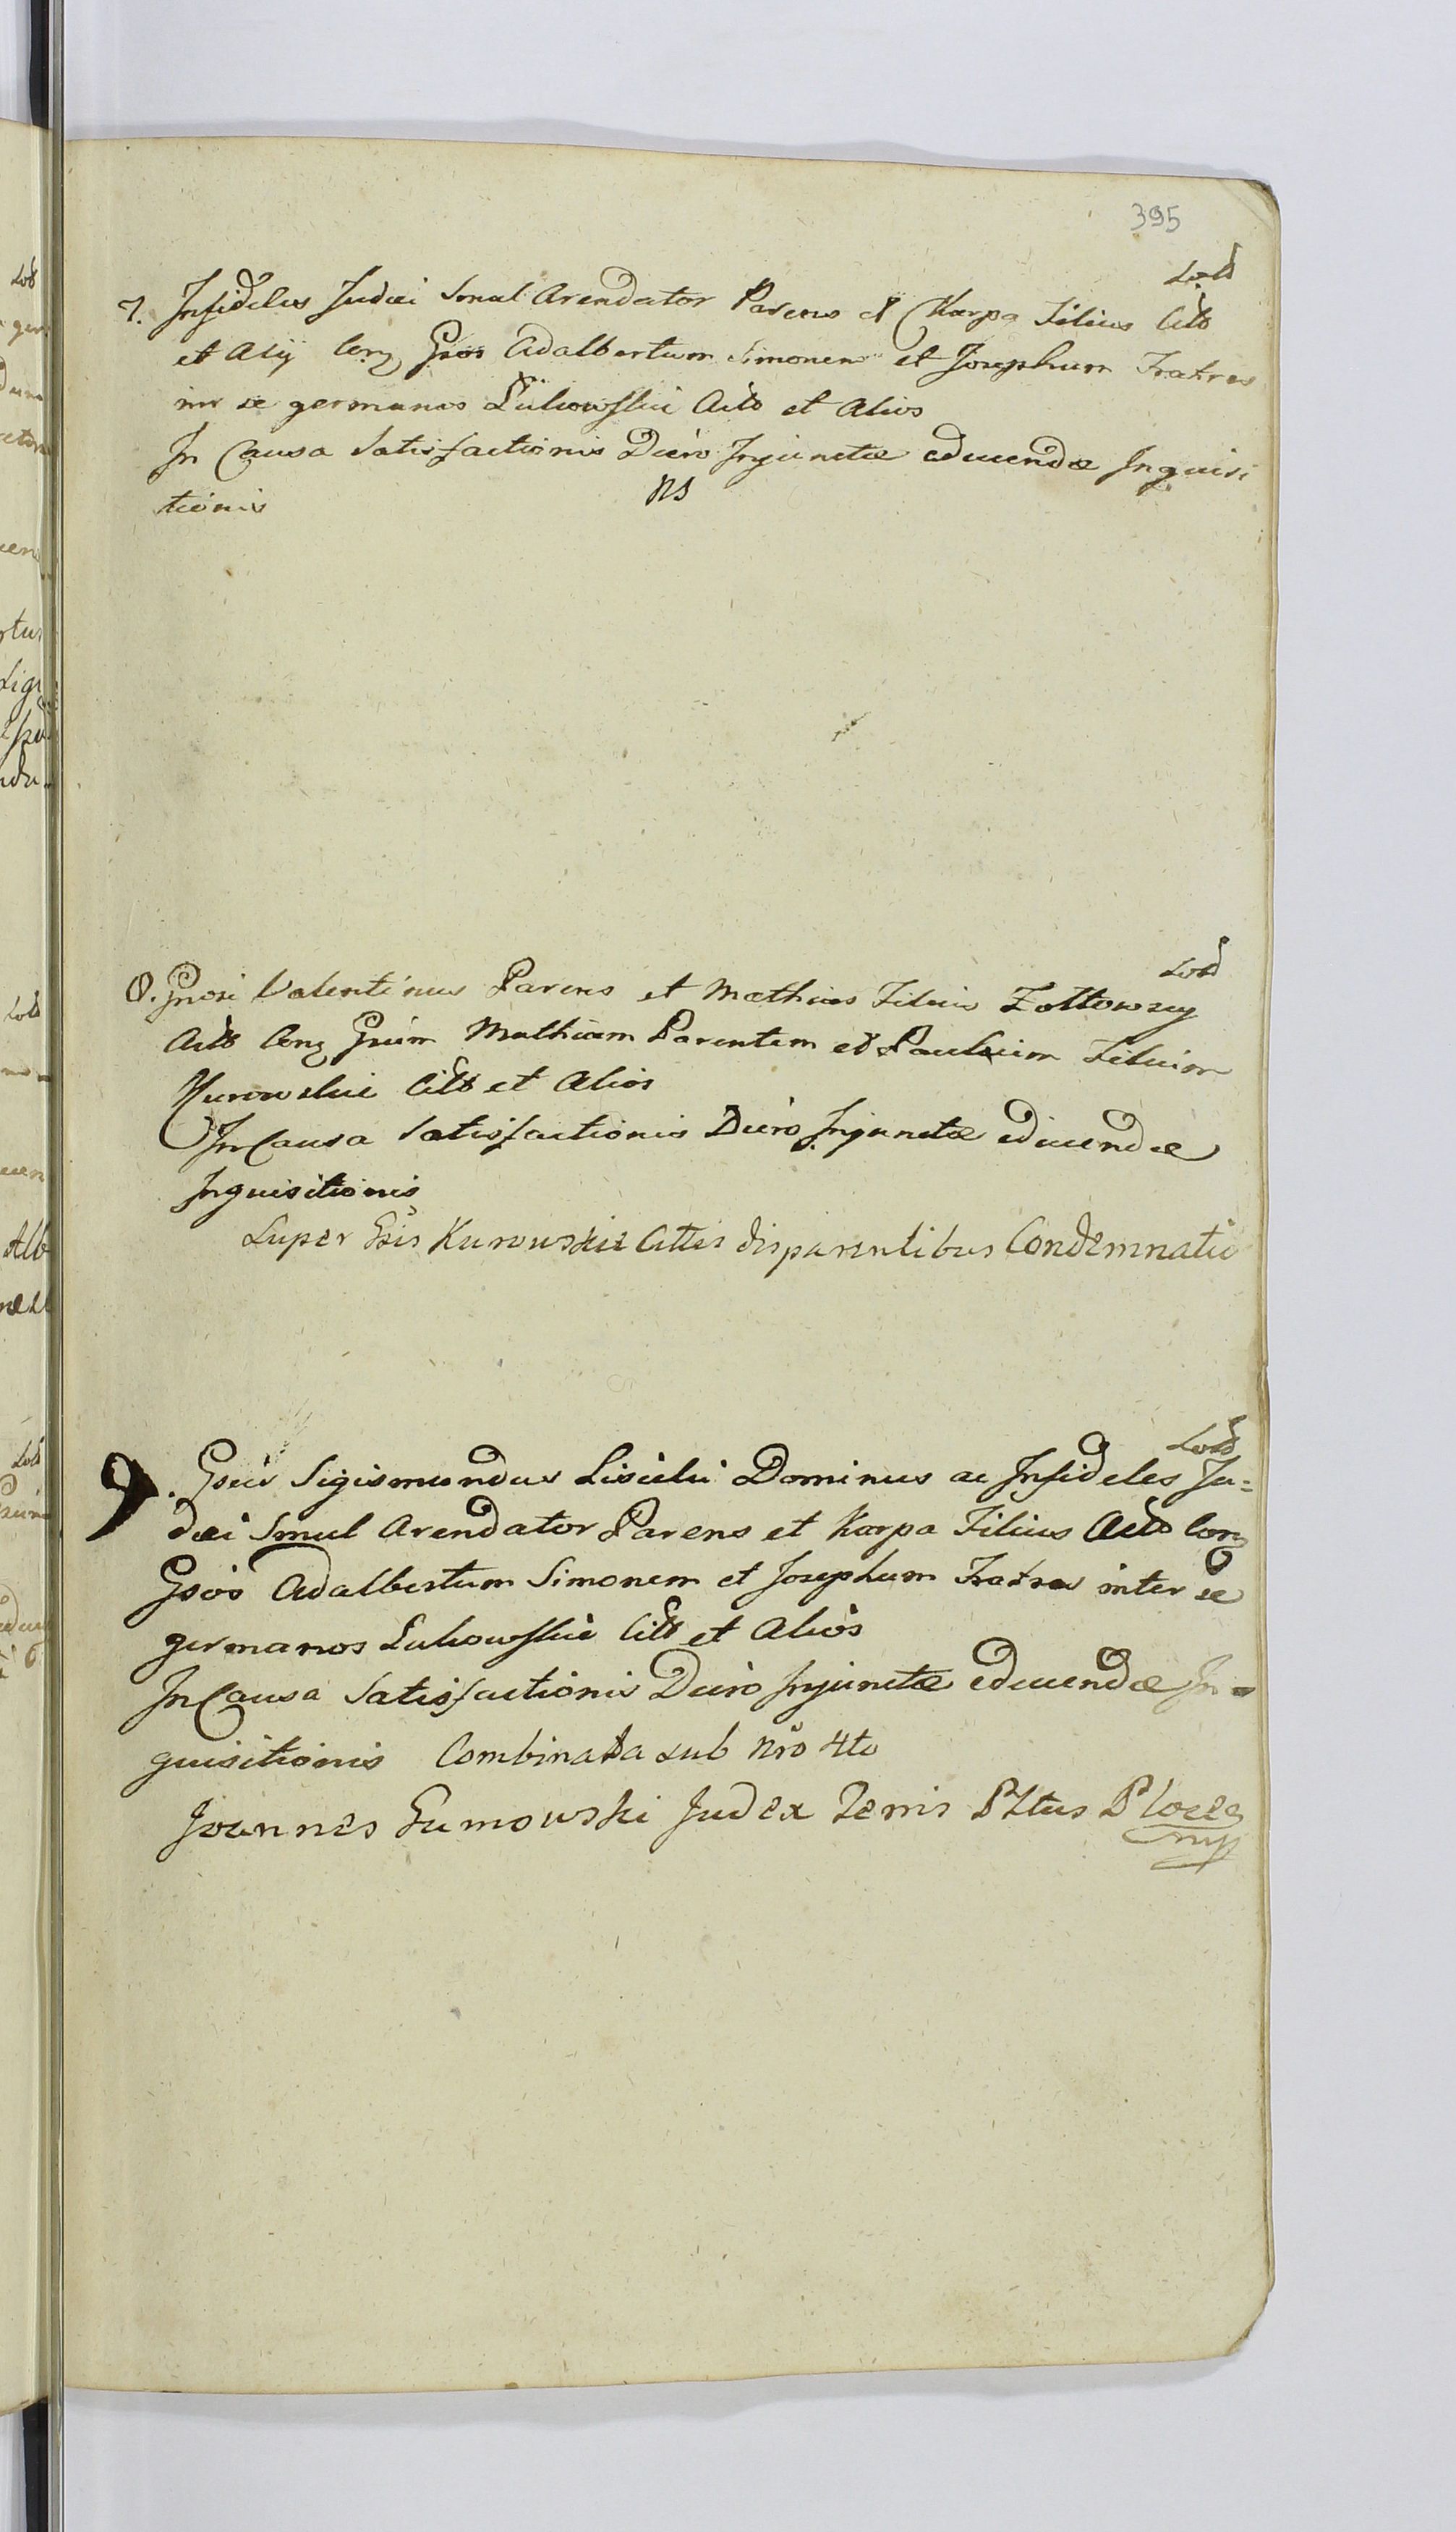 395
7. Infideles Judaei Smul Arendator Parens et Karpa Filius
et Alij Gsos Adalbertum Simonem et Josephum Fratres
inr se germanos Lukowskie et Alios
In Causa Satisfactionis Dcïro Injunctae educendae Inquisi
tionis NS
8. Gnosi Valentinus Parens et Mathias Filius Zoltowscy
Mathiam Parentem et Paulum Filium
Kurowskie et Alios
In Causa Satisfactionis Dcïro Injunctae educendae
Inquisitionis
Super Gsis Kurowskie Cittis disparentibus Condemnatio
9. Gsus Sigismundus Lisicki Dominus ac Infideles Ju=
daei Smul Arendator Parens et Karpa Filius
Gsos Adalbertum Simonem et Josephum Fratres inter se
germanos Lukowskie et Alios
In Causa Satisfactionis Dcïro Injunctae educendae In=
quisitionis Combinata sub Nro 4to
Joannes Gumowski Judex Terris Pltus Plocen
mp